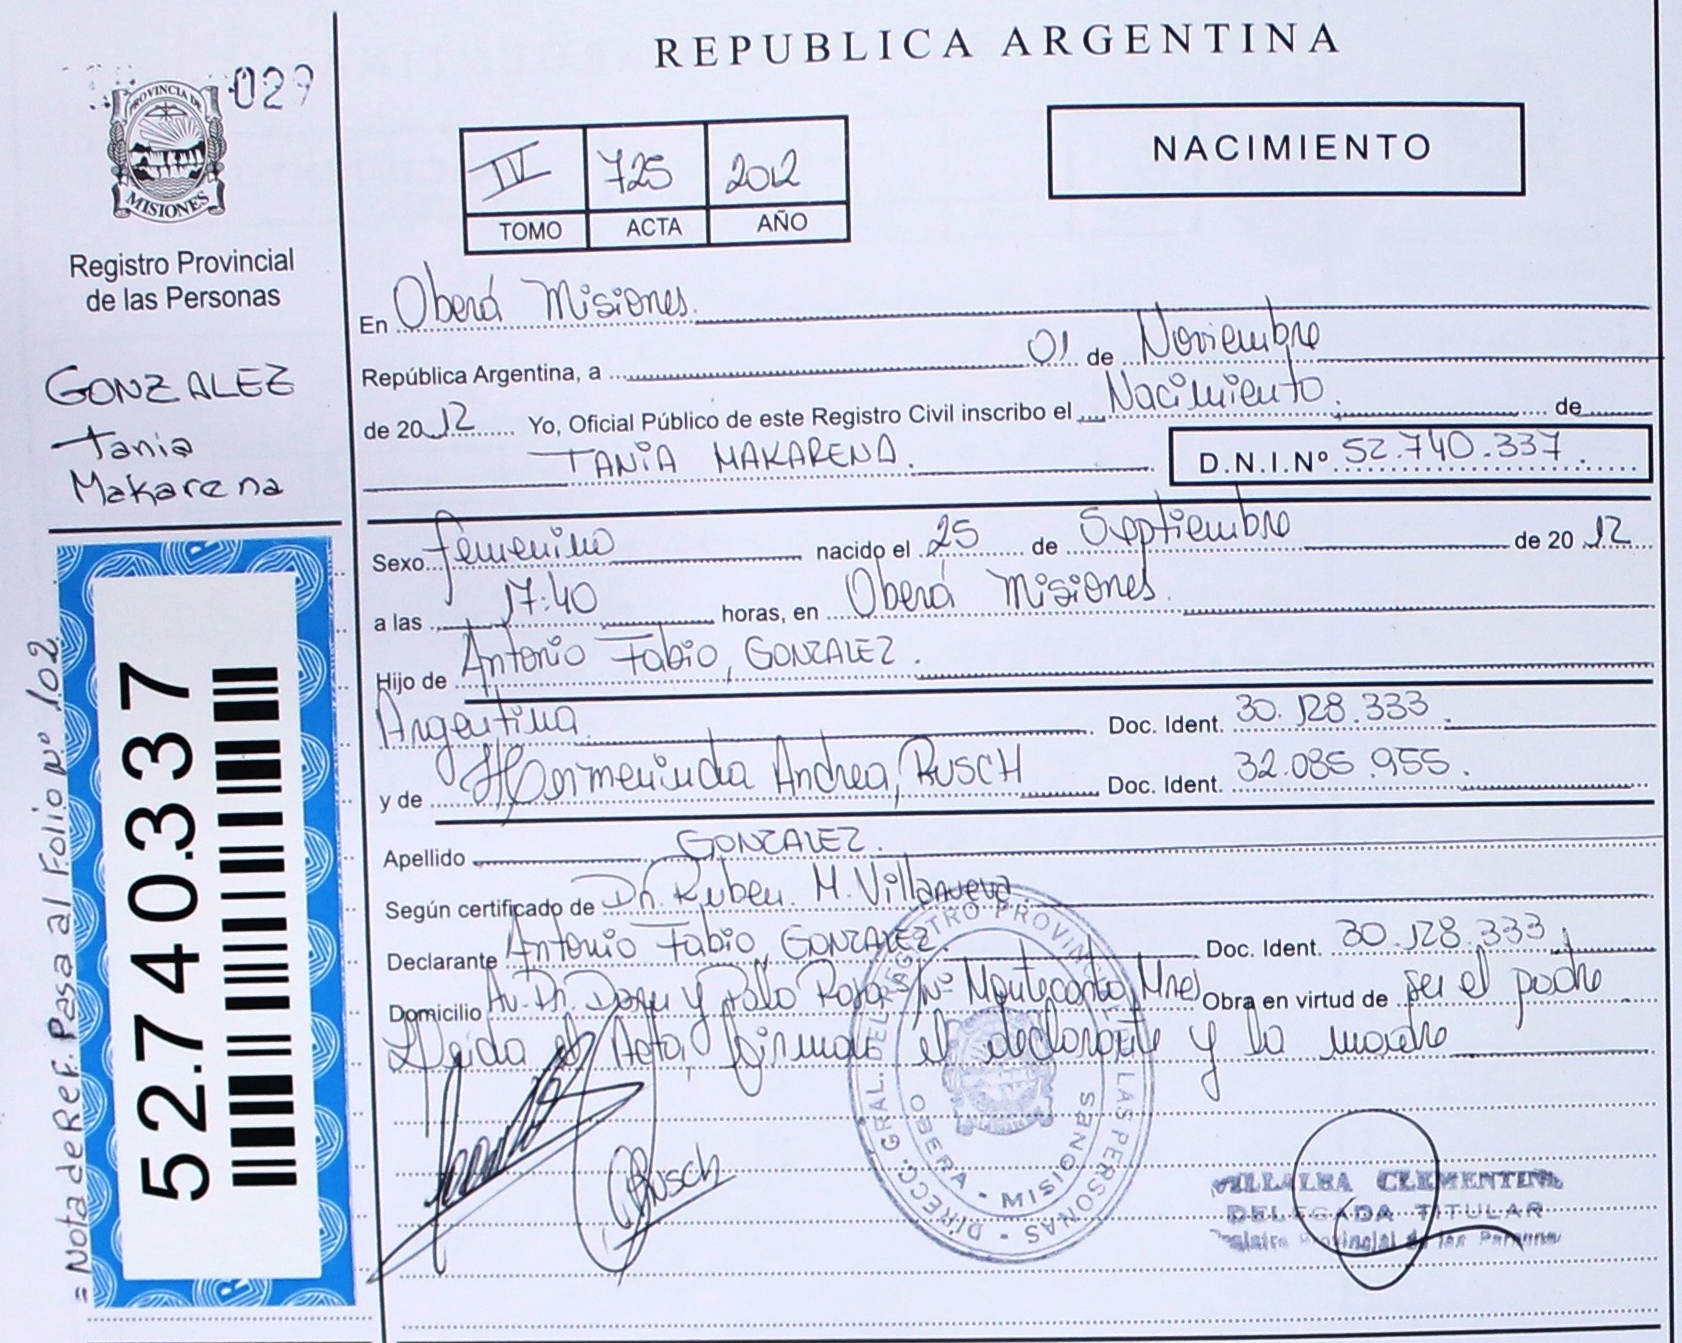 REPUBLICA ARGENTINA
029
PROVINCIA DE
MISIONES
Registro Provincial
de las Personas
GONZALEZ
Tania
Makarena
IV 725 2012
TOMO ACTA AÑO
NACIMIENTO
En Oberá Misiones.
República Argentina, a 01 de Noviembre
de 2012 Yo, Oficial Público de este Registro Civil inscribo el Nacimiento. de
TANIA MAKARENA. D.N.I.Nº 52.740.337.
Sexo femenino nacido el 25 de Septiembre de 2012
a las 17:40 horas, en Oberá Misiones.
Hijo de Antonio Fabio, GONZALEZ.
Argentina Doc. Ident. 30.128.333.
y de Hermeninda Andrea, BUSCH Doc. Ident. 32.085.955.
Apellido GONZALEZ.
Según certificado de Dr. Ruben M. Villanueva
Declarante Antonio Fabio, GONZALEZ. Doc. Ident. 30.128.333,
Domicilio Av. Dr. y Pollo Rosa Nº Montecarlo, Mnes Obra en virtud de ser el padre
Leida el Acta, firman el declarante y la madre
Busch
DIRECC. GRAL. DEL REGISTRO PROVINCIAL DE LAS PERSONAS
OBERA - MISIONES
VILLALBA CLEMENTINA
DELEGADA TITULAR
Registro Provincial de las Personas
52.740.337
=Nota de Ref. Pasa al Folio Nº 102.